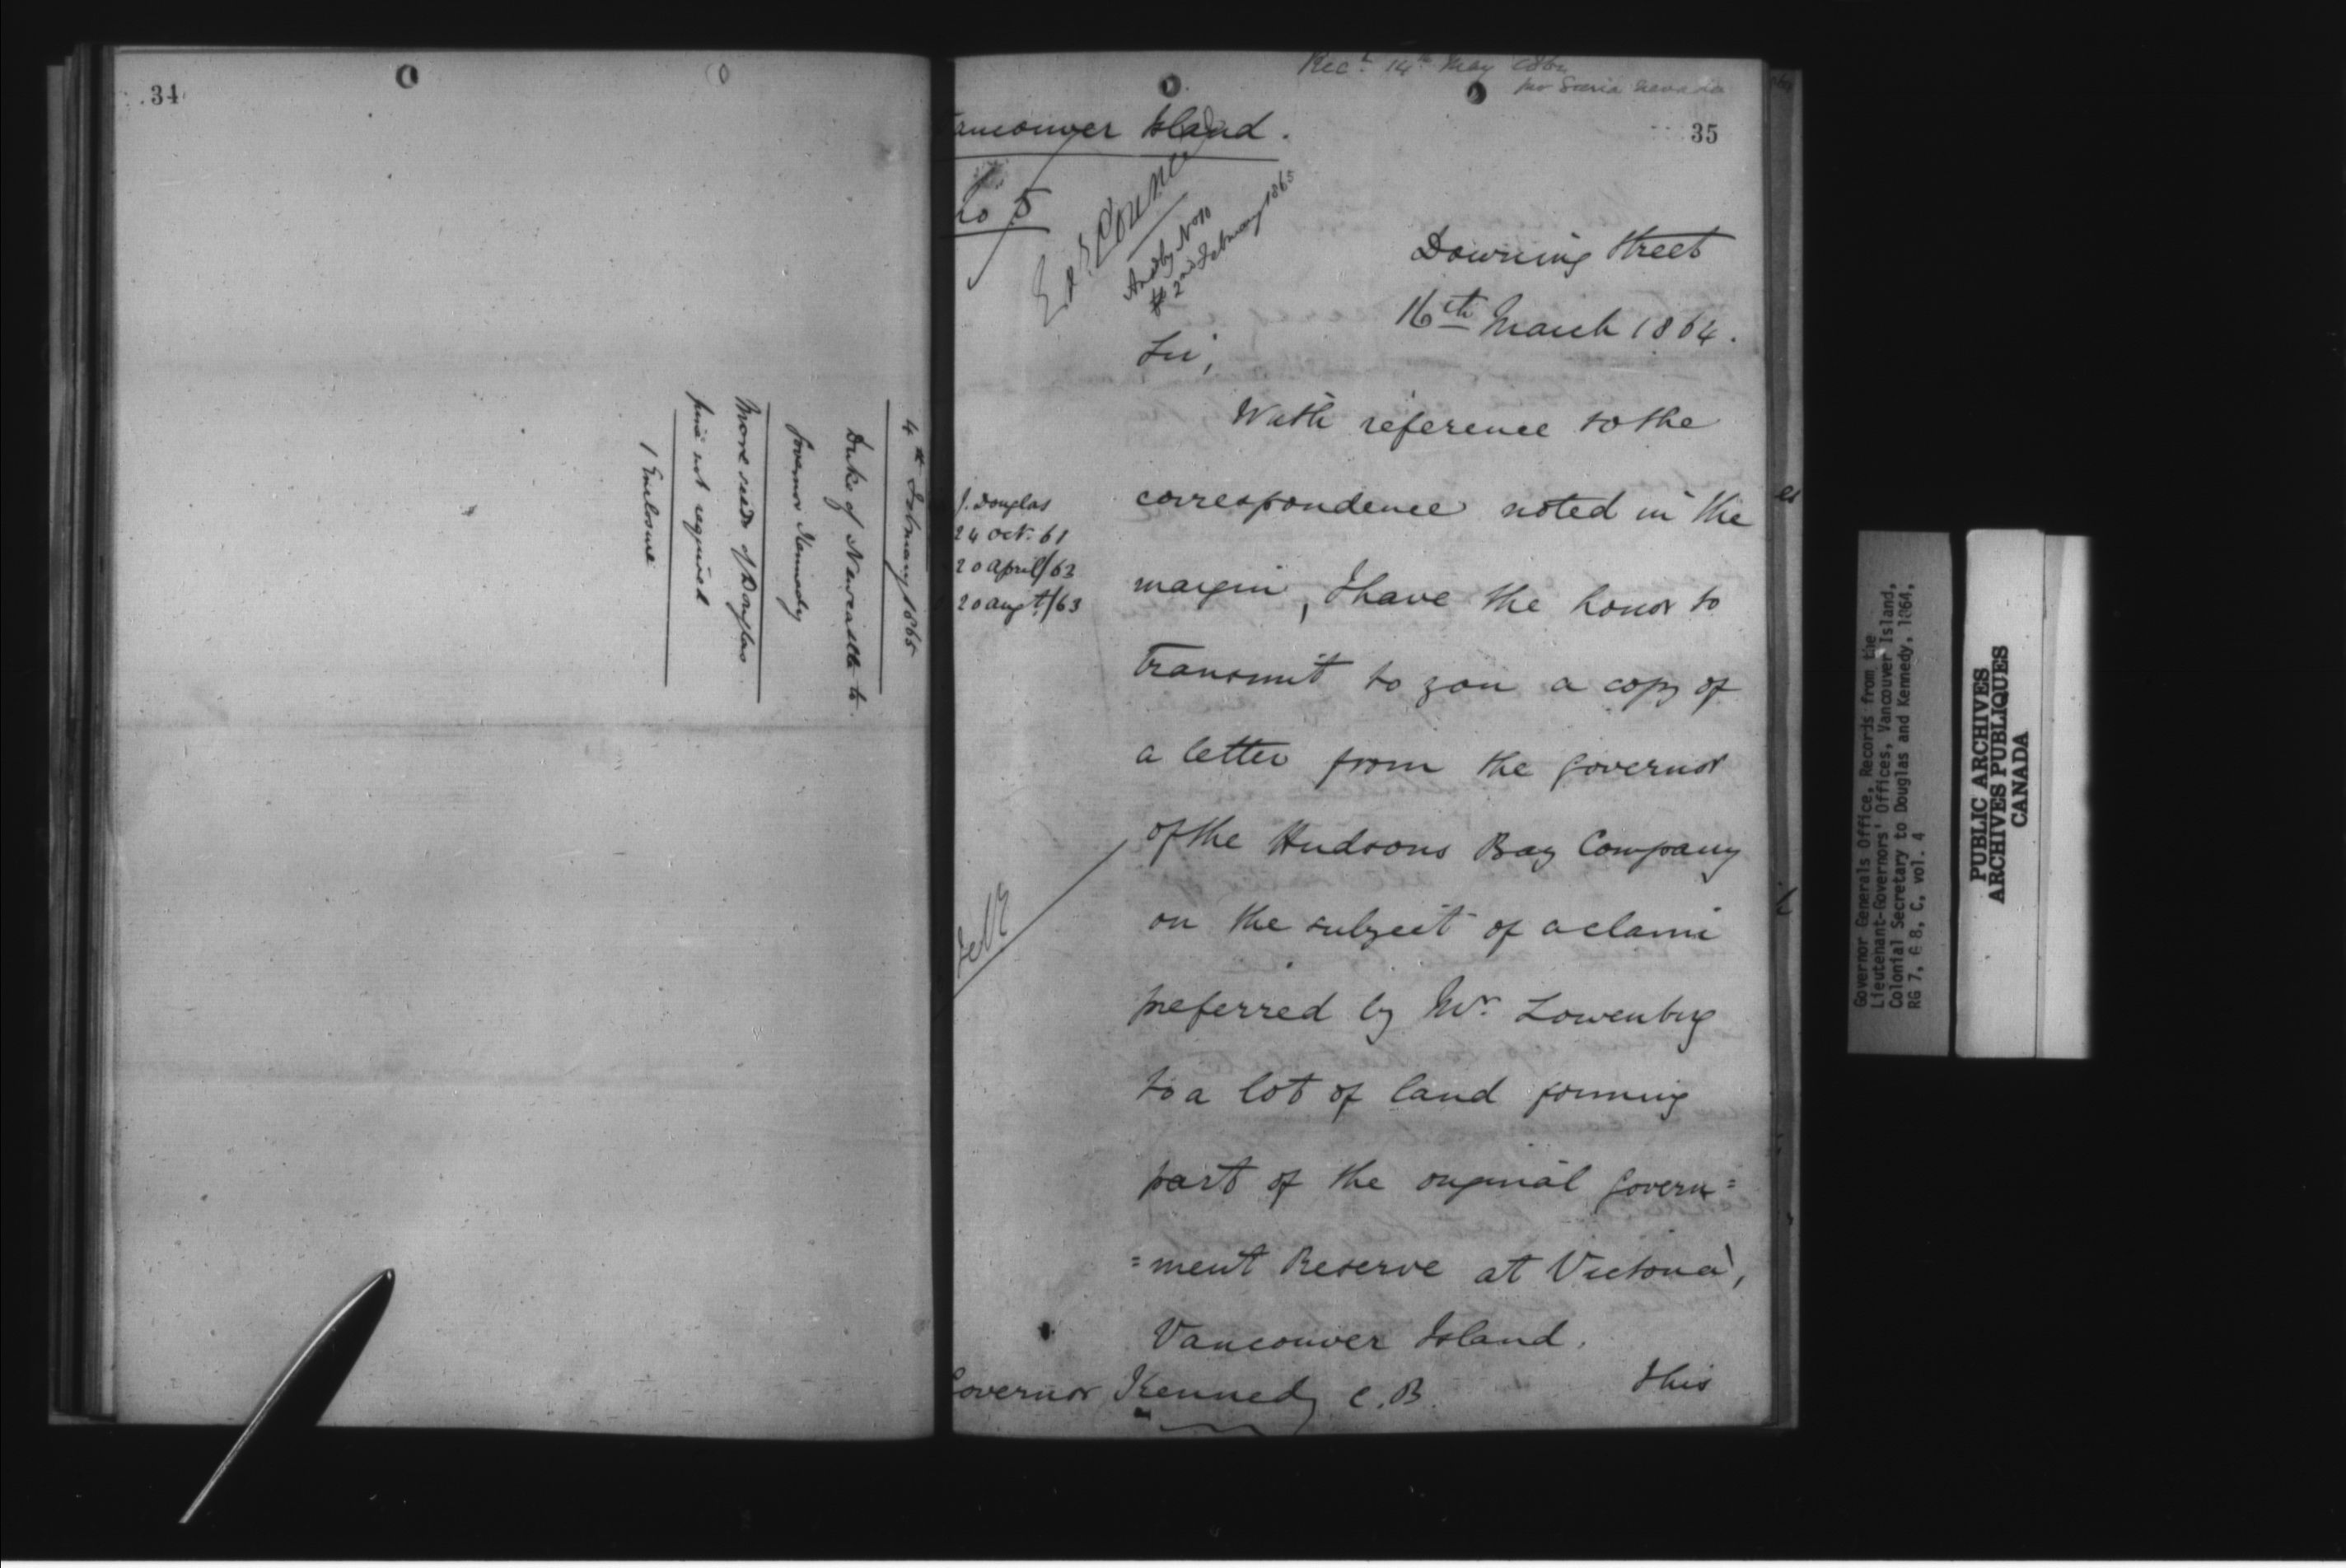 34
4th February 1865
Duke of Newcastle to
Governor Kennedy
More seeds of Douglas
pine not required
1 Enclosure
Recd 14th May 1864
35
Vancouver Island.
No 5
Exe Council
Ansd by No 10
2nd February 1865
Downing Street
16th March 1864.
Sir,
With reference to the
correspondence noted in the
J. Douglas
24 Oct. 61
20 April/63
20 Augt/63
margin, I have the honor to
transmit to you a copy of
a letter from the Governor
of the Hudsons Bay Company
on the subject of a claim
preferred by Mr. Lowenberg
to a lot of land forming
part of the original Govern=
=ment Reserve at Victoria,
Vancouver Island.
Governor Kennedy C.B.
This
Governor Generals Office, Records from the
Lieutenant-Governors' Offices, Vancouver Island,
Colonial Secretary to Douglas and Kennedy, 1864,
RG 7, G 8, C, vol. 4
PUBLIC ARCHIVES
ARCHIVES PUBLIQUES
CANADA